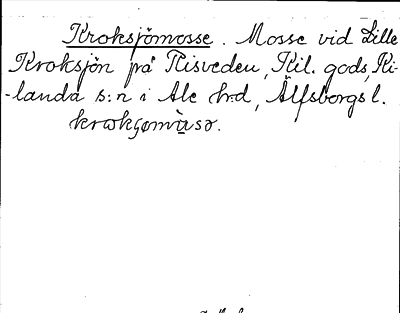 Kroksjömosse. Mosse vid Lille
Kroksjön på Risveden, Kil. gods, Ki-
-landa s:n i Ale hrd, Älfsborgs l.
krωkʂomùsə.